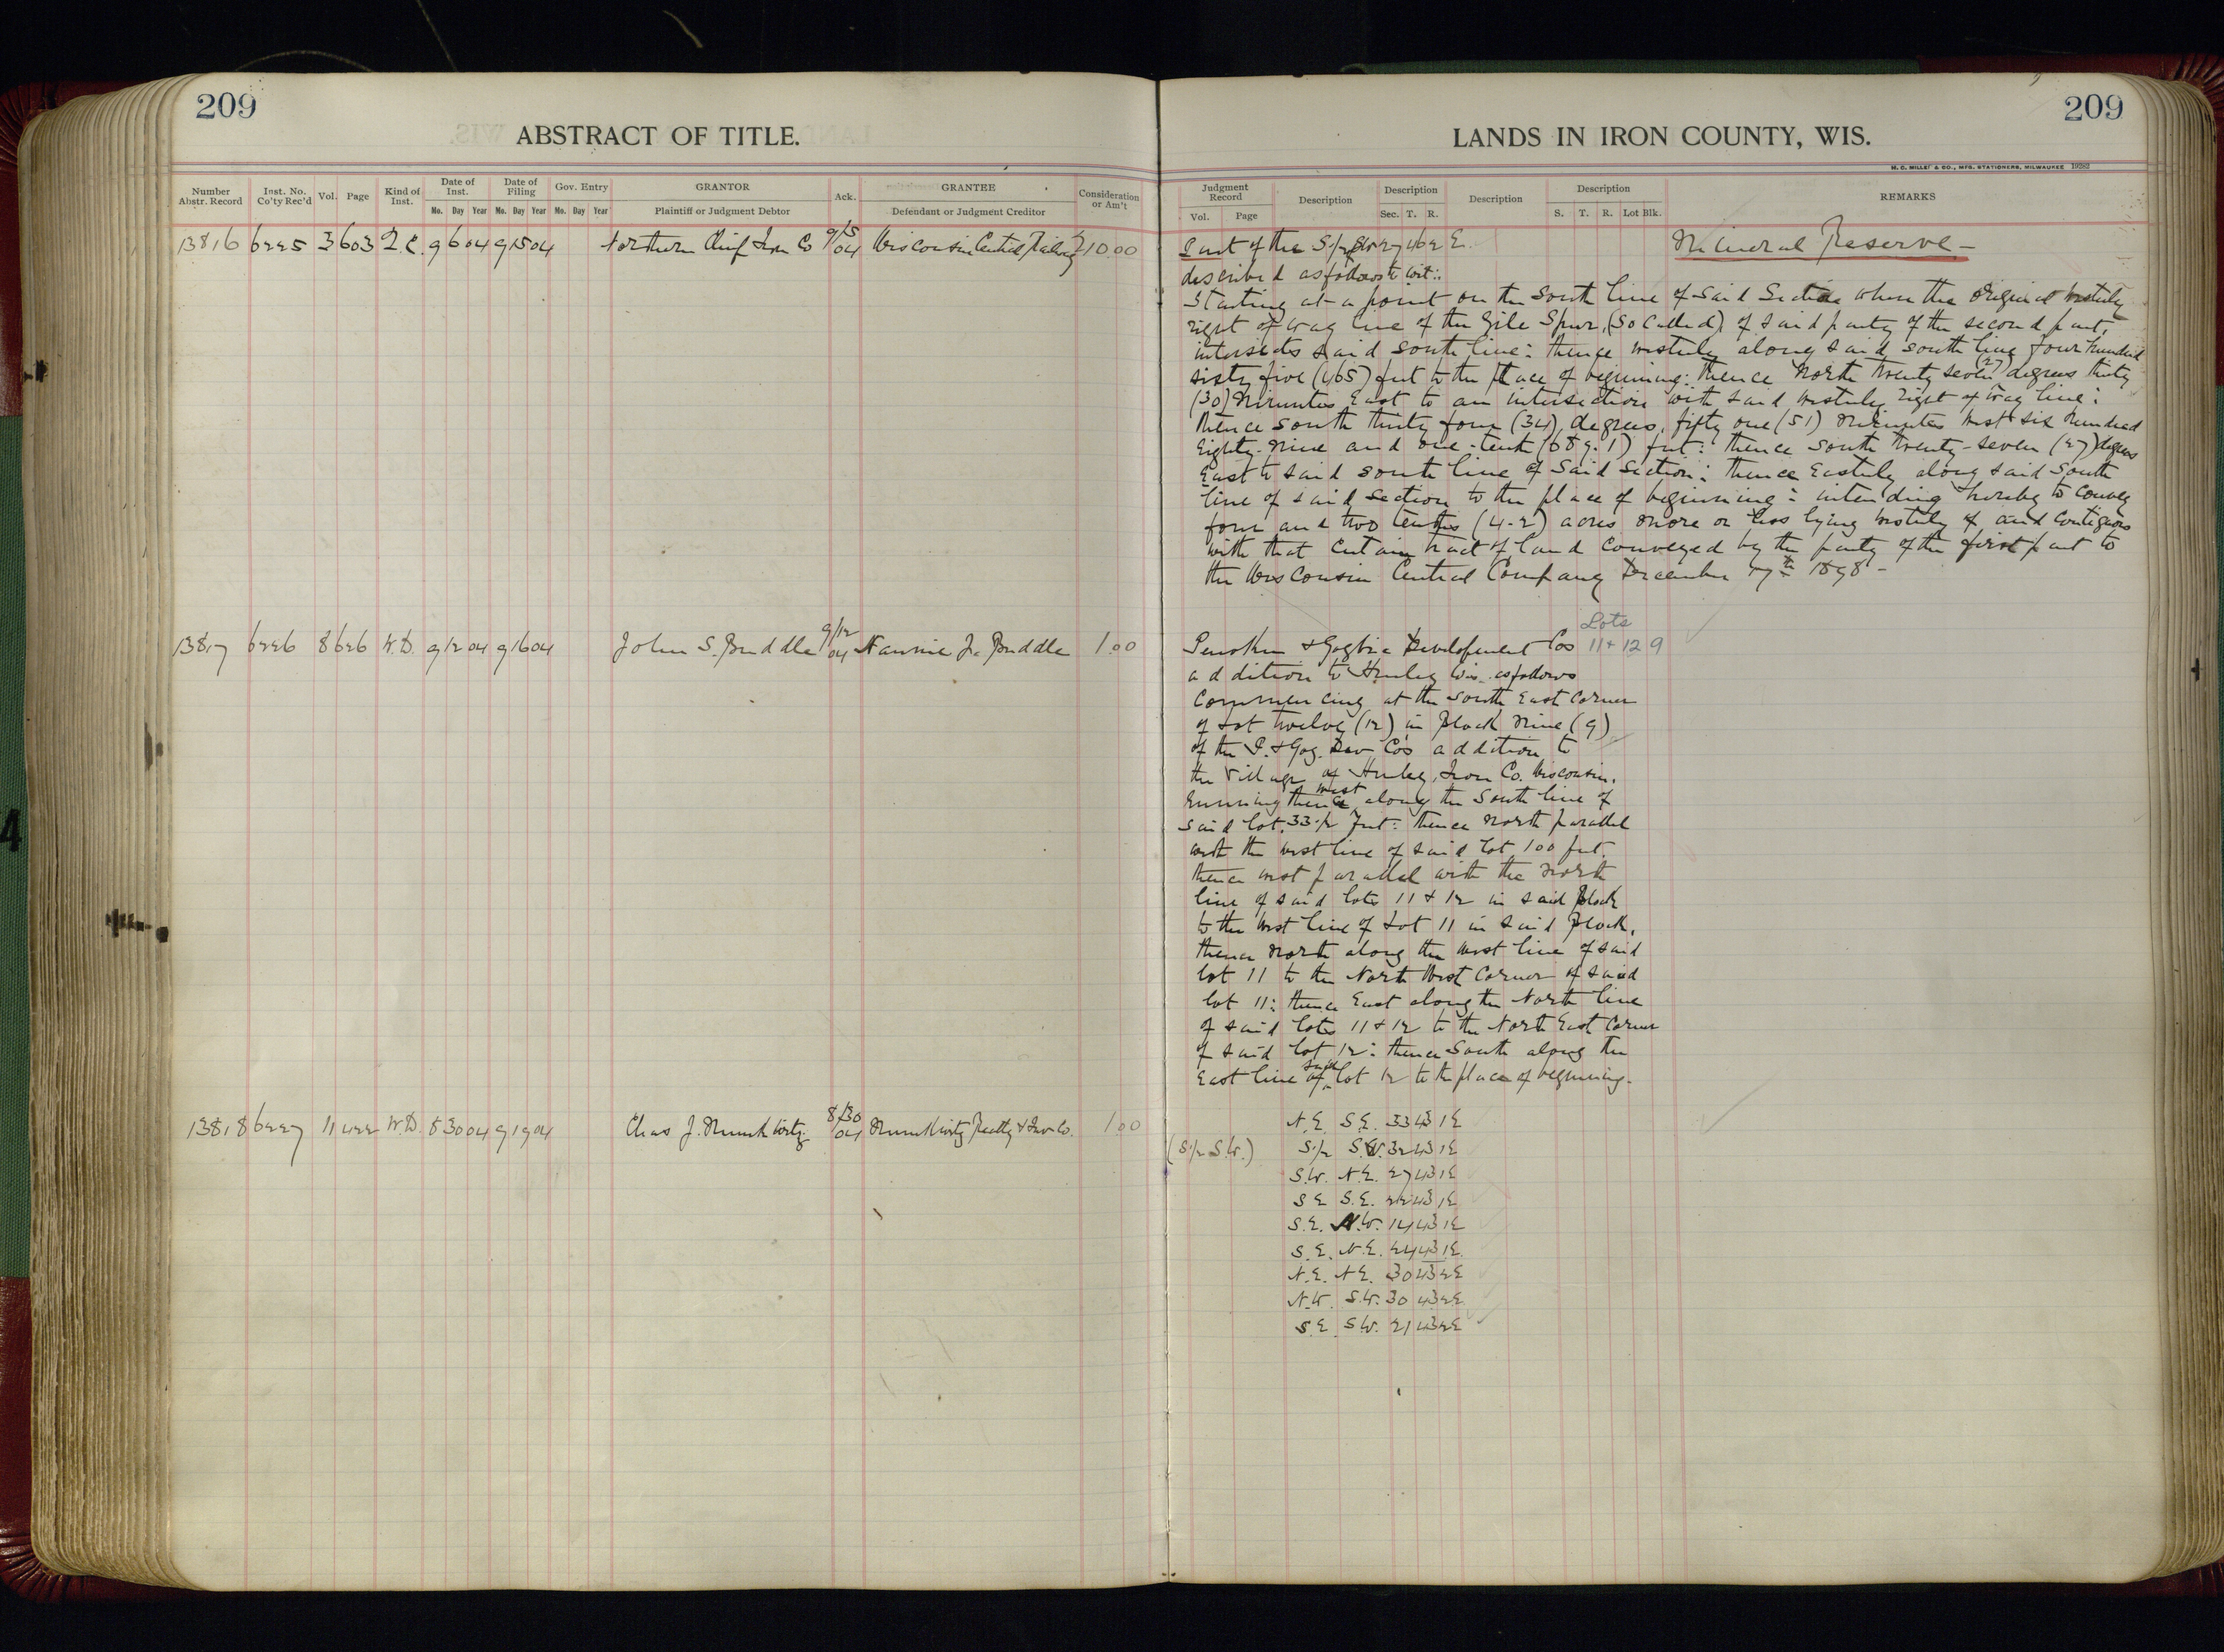 209
ABSTRACT OF TITLE.
Number Abstr. Record
Inst. No. Co'ty Rec'd
Vol.
Page
Kind of Inst.
Date of Inst.
Date of Filing
Gov. Entry
GRANTOR
Ack.
GRANTEE
Consideration or Am't
Mo. Day Year Mo. Day Year Mo. Day Year
Plaintiff or Judgment Debtor
Defendant or Judgment Creditor
13816 6225 3 603 Q.C. 9 6 04 9 15 04 Northern Chief Iron Co 9/15/04 Wisconsin Central Railway 210.00
13817 6226 8 626 W.D. 9 12 04 9 16 04 John S. Buddle 9/12/04 Nannie J. Buddle 1.00
13818 6227 11 422 W.D. 8 30 04 9 19 04 Chas J. 8/30/04 Realty & Inv Co. 1.00
209
LANDS IN IRON COUNTY, WIS.
H. C. MILLER & CO., MFG. STATIONERS, MILWAUKEE 19282
Judgment Record
Description
Description
Description
Description
REMARKS
Vol. Page
Sec. T. R.
S. T. R. Lot Blk.
Part of the S 1/2 SW 27 46 2 E.
Mineral Reserve -
described as follows to wit:
Starting at a point on the South line of said Section where the original Westerly
right of way line of the Gile Spur, (so called) of said party of the second part,
intersects said south line: thence westerly along said south line four hundred
sixty five (465) feet to the place of beginning: thence North twenty seven (27) degrees thirty
(30) Minutes East to an intersection with said westerly right of way line:
thence south thirty four (34) degrees, fifty one (51) Minutes West six hundred
Eighty-Nine and one-tenth (689.1) feet: thence south twenty-seven (27) degrees
East to said south line of said Section: thence Easterly along said south
line of said section to the place of beginning: intending hereby to convey
four and two tenths (4.2) acres more or less lying westerly of and contiguous
with that certain tract of land conveyed by the party of the first part to
the Wisconsin Central Company December 17th 1898 -
Lots
Penokee & Gogebic Development Cos 11 + 12 9
addition to Hurley Wis. as follows
Commencing at the South East Corner
of Lot twelve (12) in Block Nine (9)
of the P. & Gog. Dev Co's addition to
the Village of Hurley, Iron Co. Wisconsin.
Running thence west along the South line of
said lot. 33 1/2 Feet: thence North parallel
with the west line of said lot 100 feet.
thence west parallel with the North
line of said lots 11 & 12 in said Block
to the West line of Lot 11 in said Block.
thence North along the West line of said
lot 11 to the North West Corner of said
lot 11: thence East along the North line
of said lots 11 & 12 to the North East Corner
of said lot 12: thence South along the
East line of said lot 12 to the place of beginning.
N.E. S.E. 33 43 1E
(S 1/2 S.W.) S 1/2 S.W. 32 43 1E
S.W. N.E. 27 43 1E
S E S.E. 22 43 1E
S.E. N.W. 14 43 1E
S.E. N.E. 24 43 1E
N.E. N.E. 30 43 2E
N.W. S.W. 30 43 2E
S.E. S.W. 21 43 2E
4